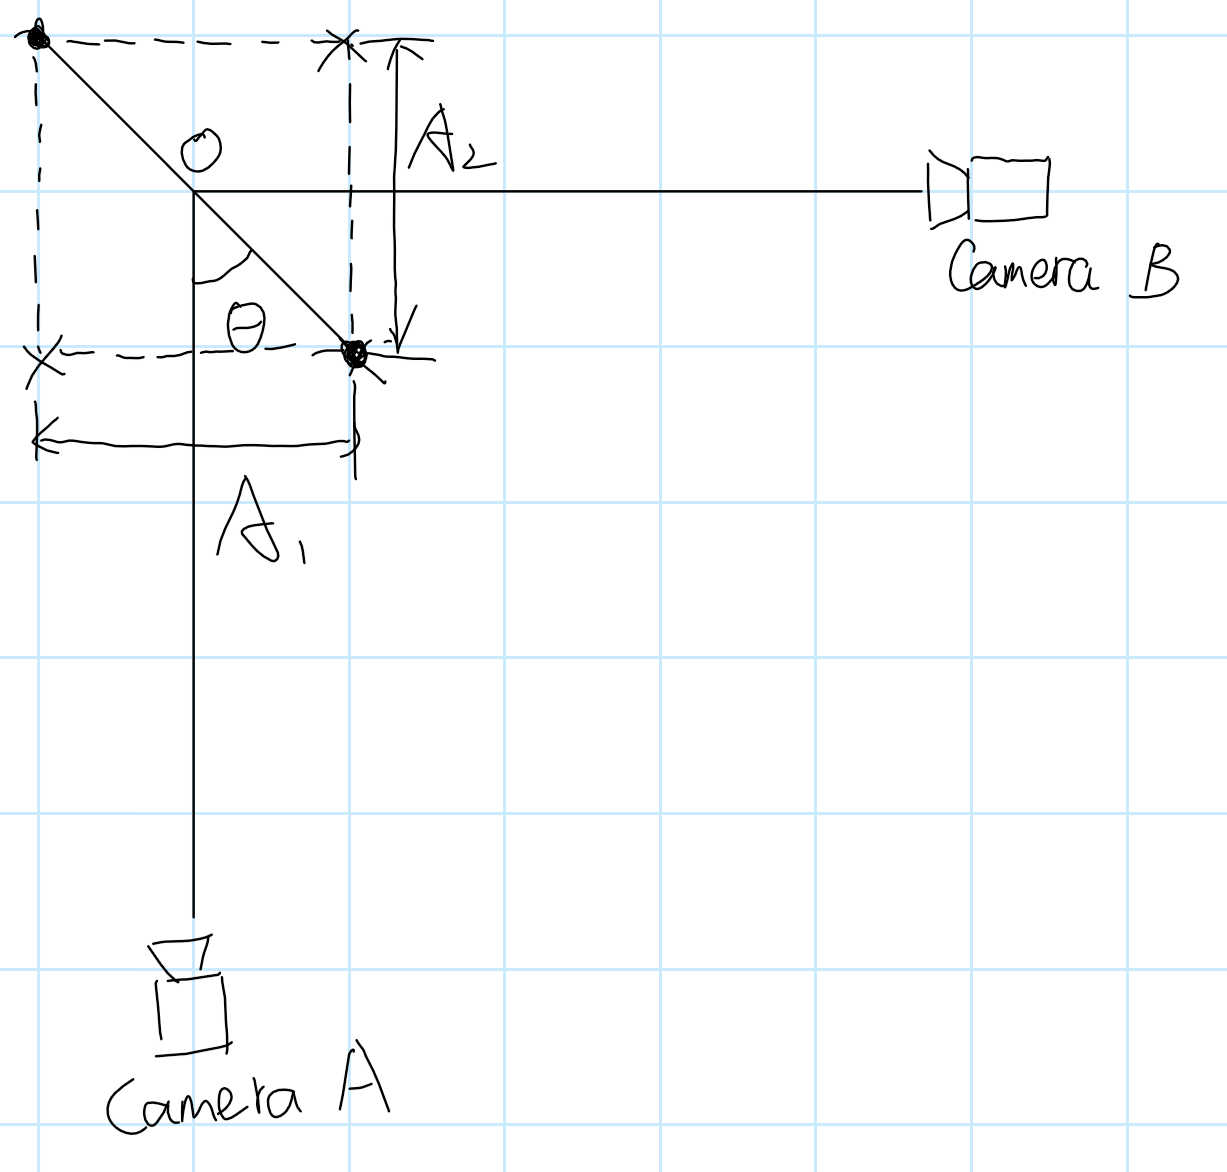 A₂
O
Camera B
θ
A₁
Camera A